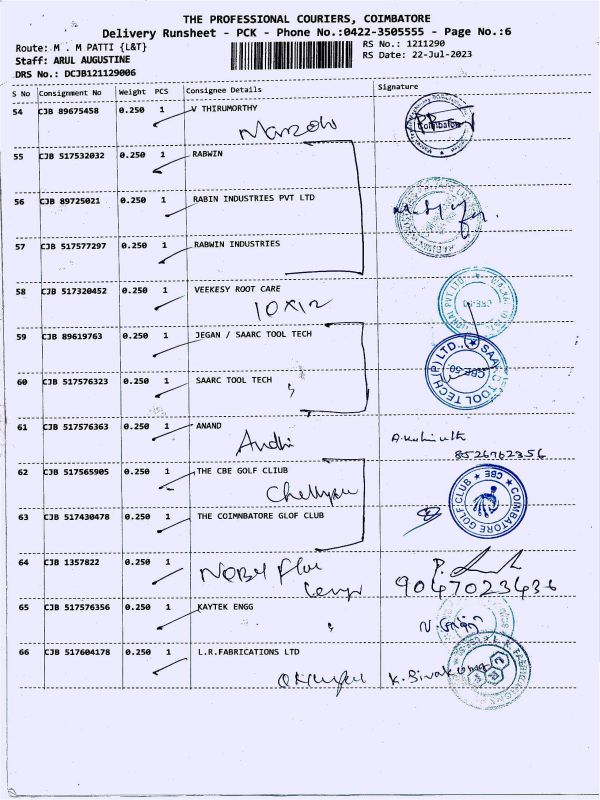 THE PROFESSIONAL COURIERS, COIMBATORE
Delivery Runsheet - PCK - Phone No.:0422-3505555 - Page No.:6
Route: M . M PATTI {L&T}
RS No.: 1211290
Staff: ARUL AUGUSTINE
RS Date: 22-Jul-2023
DRS No.: DCJB121129006
S No Consignment No Weight PCS Consignee Details Signature
54 CJB 89675458 0.250 1 V THIRUMORTHY
Coimbatore
55 CJB 517532032 0.250 1 RABWIN
56 CJB 89725021 0.250 1 RABIN INDUSTRIES PVT LTD
57 CJB 517577297 0.250 1 RABWIN INDUSTRIES
58 CJB 517320452 0.250 1 VEEKESY ROOT CARE
59 CJB 89619763 0.250 1 JEGAN / SAARC TOOL TECH
SAARC TOOL TECH (P) LTD.,
60 CJB 517576323 0.250 1 SAARC TOOL TECH
61 CJB 517576363 0.250 1 ANAND
8526762356
62 CJB 517565905 0.250 1 THE CBE GOLF CLIUB
COIMBATORE GOLF CLUB CBE
63 CJB 517430478 0.250 1 THE COIMNBATORE GLOF CLUB
64 CJB 1357822 0.250 1
9047023436
65 CJB 517576356 0.250 1 KAYTEK ENGG
66 CJB 517604178 0.250 1 L.R.FABRICATIONS LTD
K. Sivakumar